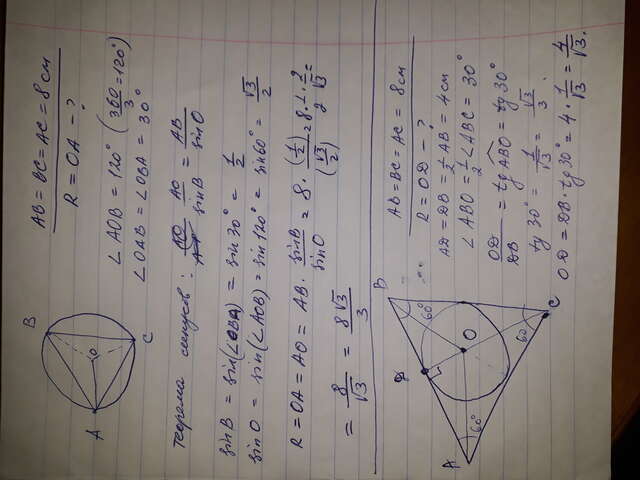 B
AB = BC = AC = 8 см
R = OA - ?
A
O
C
∠ AOB = 120° (360/3 = 120°)
∠ OAB = ∠ OBA = 30°
теорема синусов: AO/sin B = AB/sin O
sin B = sin(∠OBA) = sin 30° = 1/2
sin O = sin(∠AOB) = sin 120° = sin 60° = √3/2
R = OA = AO = AB · sin B/sin O = 8 · (1/2)/(√3/2) = 8 · 1/2 · 2/√3 =
= 8/√3 = 8√3/3
B
D
60°
A
60°
O
60
C
AB = BC = AC = 8 см
R = OD - ?
AD = DB = 1/2 AB = 4 см
∠ ABO = 1/2 ∠ ABC = 30°
OD/DB = tg ABO = tg 30°
tg 30° = 1/√3 = √3/3.
OD = DB · tg 30° = 4 · 1/√3 = 4/√3.